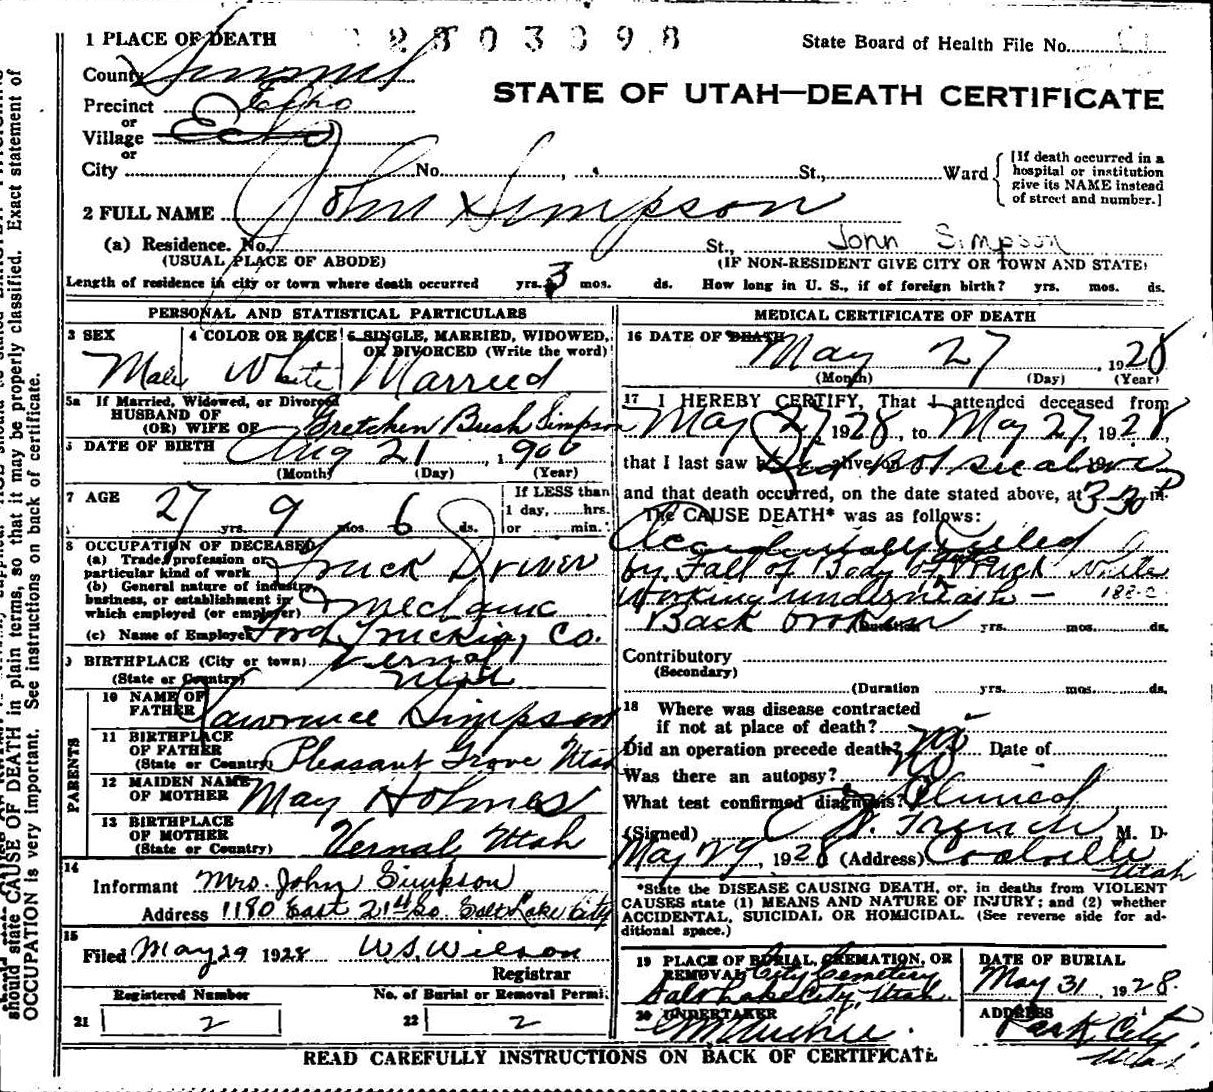 1 PLACE OF DEATH 2803098 State Board of Health File No.
County Summit
STATE OF UTAH—DEATH CERTIFICATE
Precinct Echo
or
Village Echo
or
City No. St., Ward
[If death occurred in a hospital or institution give its NAME instead of street and number.]
2 FULL NAME John Simpson
(a) Residence. No. St., John Simpson
(USUAL PLACE OF ABODE) (IF NON-RESIDENT GIVE CITY OR TOWN AND STATE)
Length of residence in city or town where death occurred yrs. 3 mos. ds. How long in U. S., if of foreign birth? yrs. mos. ds.
PERSONAL AND STATISTICAL PARTICULARS
3 SEX 4 COLOR OR RACE 5 SINGLE, MARRIED, WIDOWED, OR DIVORCED (Write the word)
Male White Married
5a If Married, Widowed, or Divorced
HUSBAND OF
(OR) WIFE OF Gretchen Bush Simpson
6 DATE OF BIRTH Aug 21, 1900
(Month) (Day) (Year)
7 AGE If LESS than
27 yrs. 9 mos. 6 ds. 1 day, hrs.
or min.
8 OCCUPATION OF DECEASED
(a) Trade, profession or
particular kind of work Truck Driver
(b) General nature of industry,
business, or establishment in
which employed (or employer) Mechanic
(c) Name of Employer Ford Trucking Co.
9 BIRTHPLACE (City or town) Vernal
(State or Country) Utah
PARENTS
10 NAME OF
FATHER Lawrence Simpson
11 BIRTHPLACE
OF FATHER
(State or Country) Pleasant Grove Utah
12 MAIDEN NAME
OF MOTHER May Holmes
13 BIRTHPLACE
OF MOTHER
(State or Country) Vernal Utah
14
Informant Mrs. John Simpson
Address 1180 East 21st So. Salt Lake City
15
Filed May 29 1928 W.S. Wilson
Registrar
Registered Number No. of Burial or Removal Permi.
21 2 22 2
MEDICAL CERTIFICATE OF DEATH
16 DATE OF DEATH May 27, 1928
(Month) (Day) (Year)
17 I HEREBY CERTIFY, That I attended deceased from
May 27, 1928, to May 27, 1928,
that I last saw h alive on Did not see alive 19
and that death occurred, on the date stated above, at 3-30 P m.
The CAUSE DEATH* was as follows:
Accidentally Killed
by Fall of Body of Truck while
working underneath — 188-2
Back broken Duration yrs. mos. ds.
Contributory
(Secondary)
(Duration yrs. mos. ds.
18 Where was disease contracted
if not at place of death?
Did an operation precede death? No Date of
Was there an autopsy? No
What test confirmed diagnosis? Clinical
(Signed) Trench M. D.
May 29, 1928 (Address) Coalville
Utah
*State the DISEASE CAUSING DEATH, or, in deaths from VIOLENT
CAUSES state (1) MEANS AND NATURE OF INJURY; and (2) whether
ACCIDENTAL, SUICIDAL OR HOMICIDAL. (See reverse side for ad-
ditional space.)
19 PLACE OF BURIAL, CREMATION, OR DATE OF BURIAL
REMOVAL City Cemetery
Salt Lake City, Utah. May 31, 1928.
20 UNDERTAKER ADDRESS
Park City
Utah
READ CAREFULLY INSTRUCTIONS ON BACK OF CERTIFICATE
should state CAUSE OF DEATH in plain terms, so that it may be properly classified. Exact statement of
OCCUPATION is very important. See instructions on back of certificate.